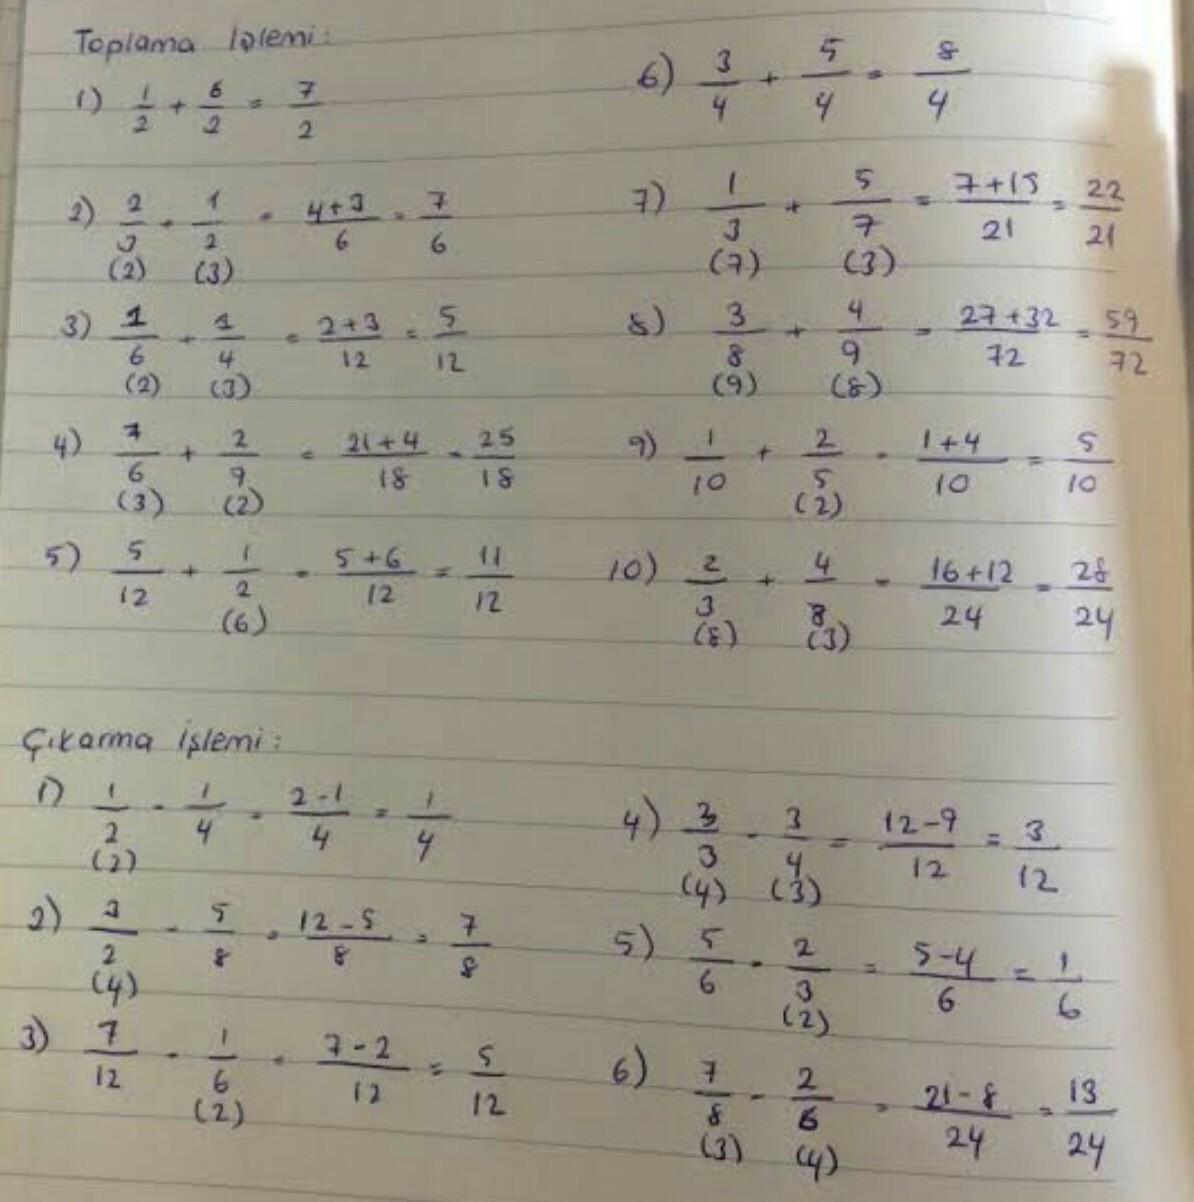 Toplama İşlemi:
1) 1/2 + 6/2 = 7/2
2) 2/3 + 1/2 = 4+3/6 = 7/6
(2) (3)
3) 1/6 + 1/4 = 2+3/12 = 5/12
(2) (3)
4) 7/6 + 2/9 = 21+4/18 = 25/18
(3) (2)
5) 5/12 + 1/2 = 5+6/12 = 11/12
(6)
6) 3/4 + 5/4 = 8/4
7) 1/3 + 5/7 = 7+15/21 = 22/21
(7) (3)
8) 3/8 + 4/9 = 27+32/72 = 59/72
(9) (8)
9) 1/10 + 2/5 = 1+4/10 = 5/10
(2)
10) 2/3 + 4/8 = 16+12/24 = 28/24
(8) (3)
Çıkarma İşlemi:
1) 1/2 - 1/4 = 2-1/4 = 1/4
(2)
2) 3/2 - 5/8 = 12-5/8 = 7/8
(4)
3) 7/12 - 1/6 = 7-2/12 = 5/12
(2)
4) 3/3 - 3/4 = 12-9/12 = 3/12
(4) (3)
5) 5/6 - 2/3 = 5-4/6 = 1/6
(2)
6) 7/8 - 2/6 = 21-8/24 = 13/24
(3) (4)